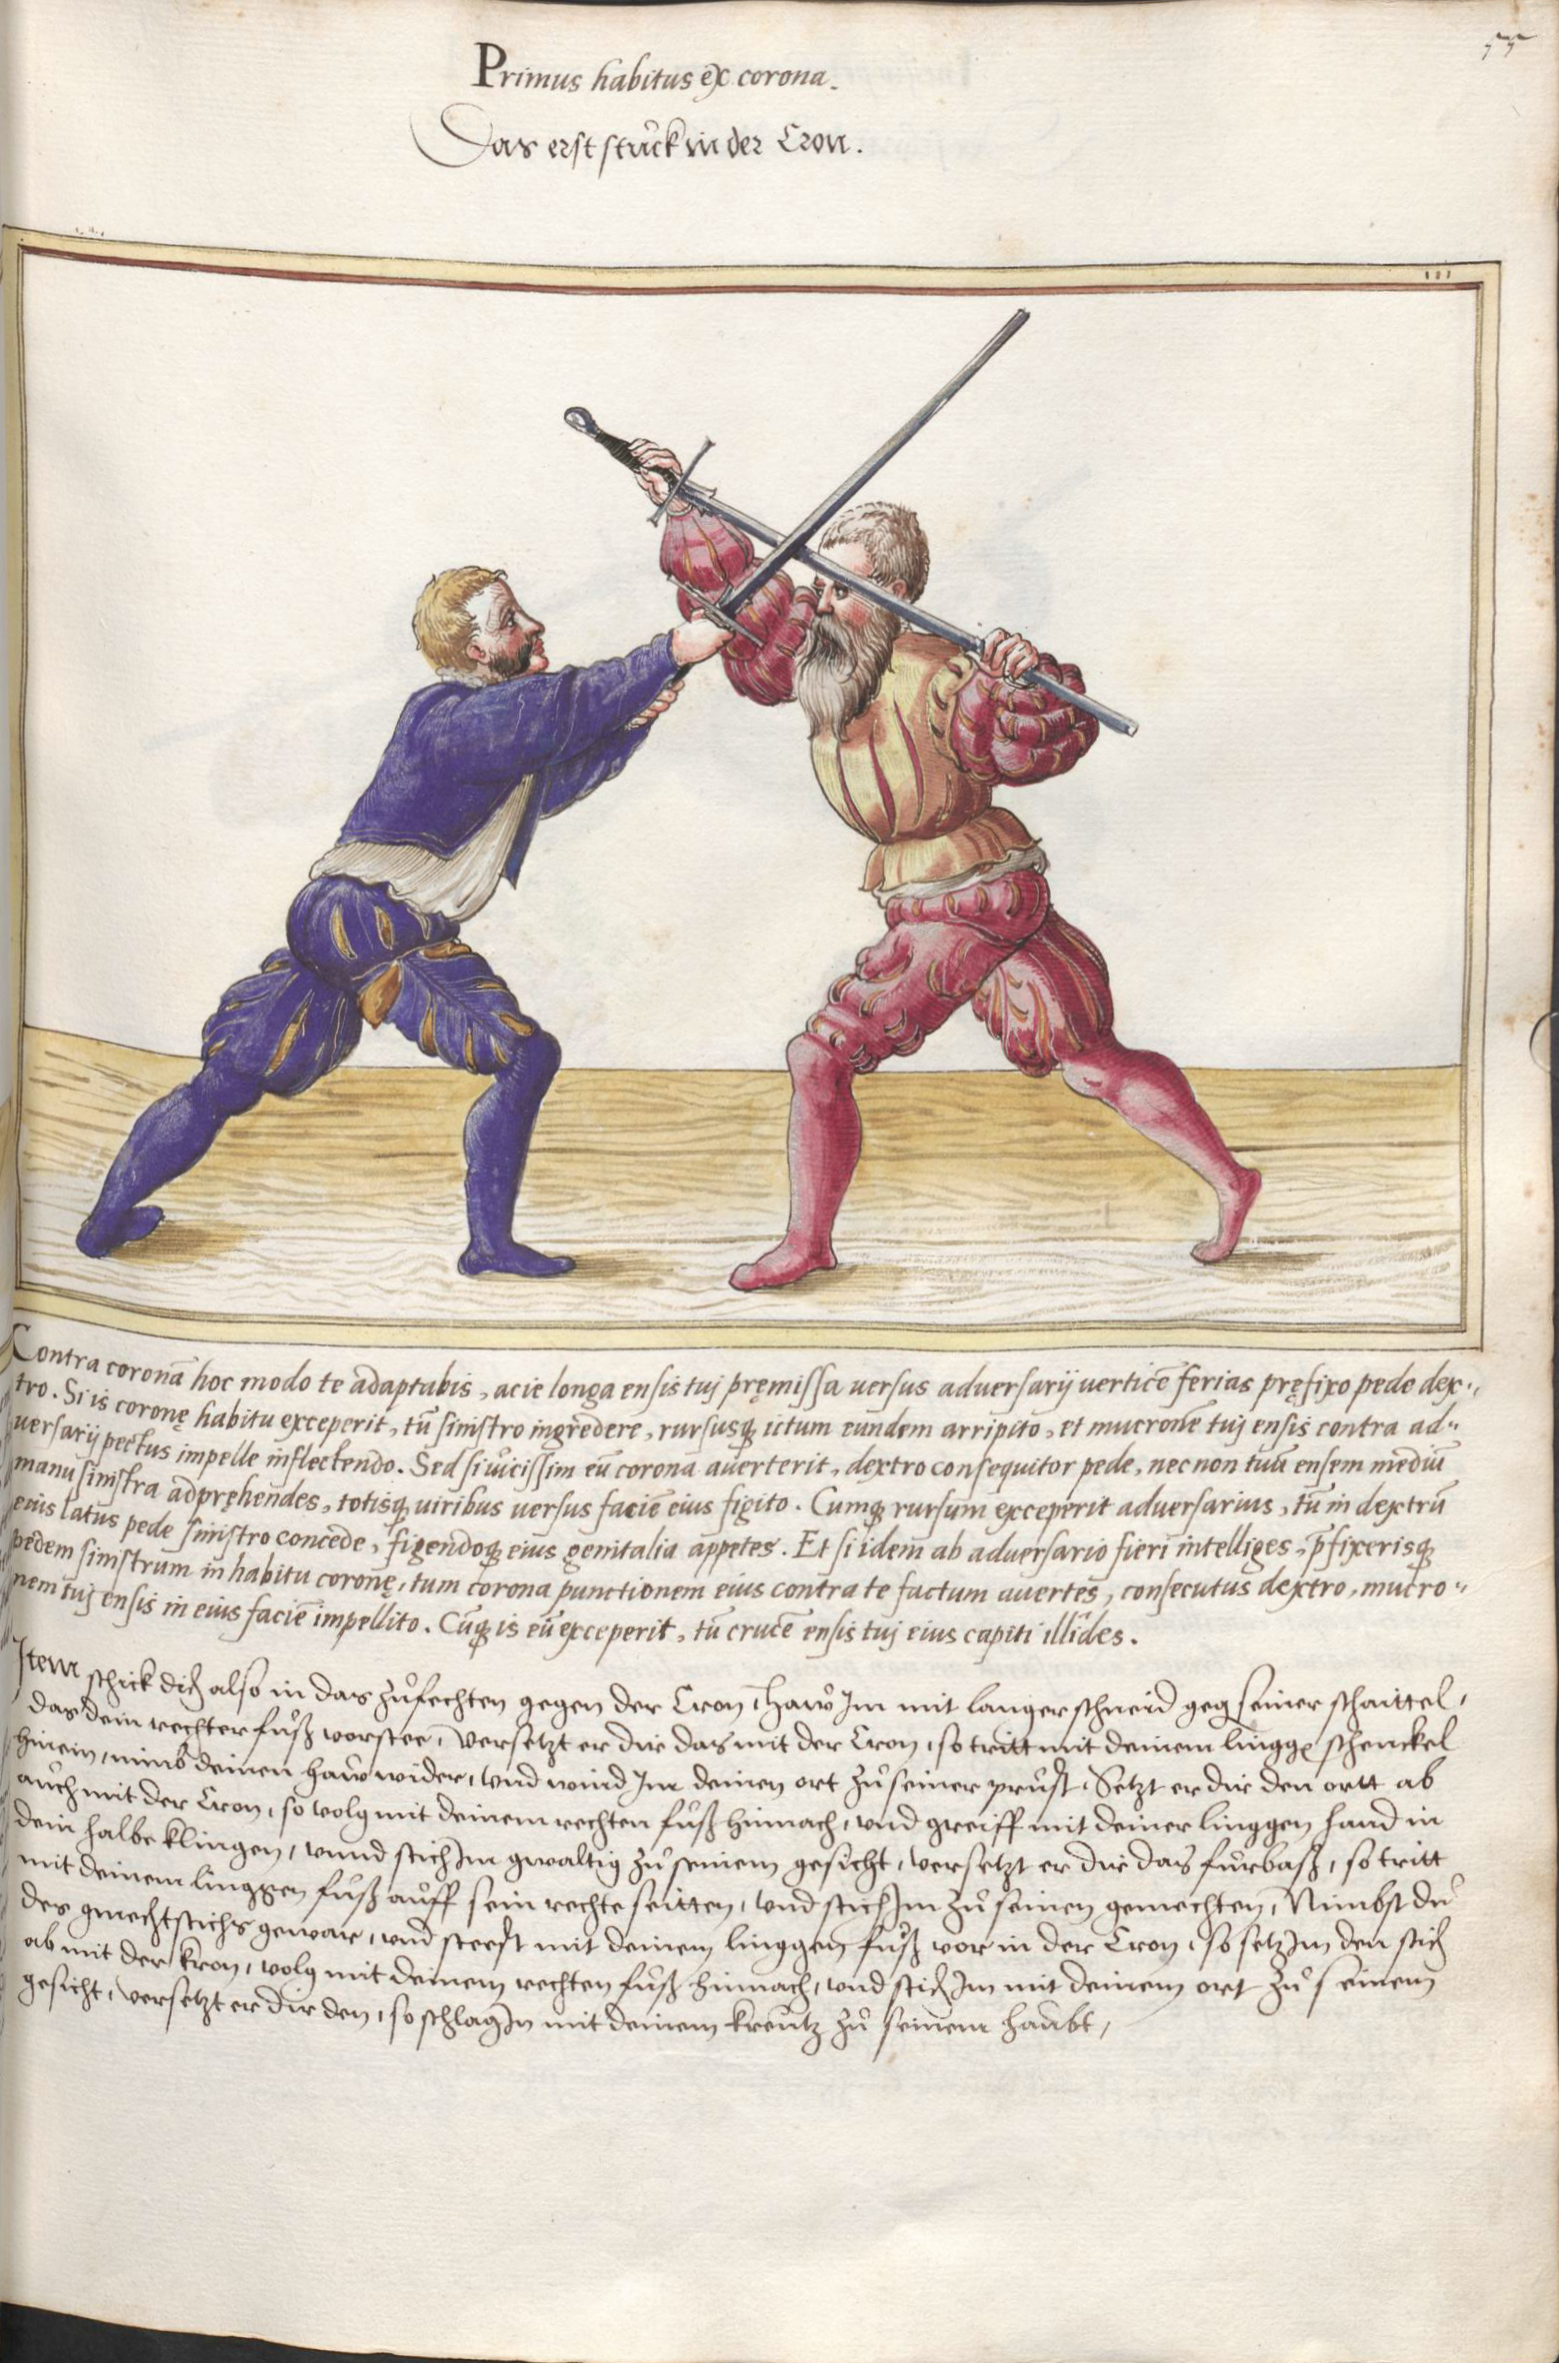 77
Primus habitus ex corona.
Das erst stuck in der Cron.
Contra coronā hoc modo te adaptabis, acie longa ensis tuj pręmissa uersus aduersarij uerticē ferias pręfixo pede dex-
tro. Si is coronę habitu exceperit, tū sinistro ingredere, rursusq́ ictum eundem arripito, et mucronē tuj ensis contra ad-
uersarij pectus impelle inflectendo. Sed si uicissim eū corona auerterit, dextro consequitor pede, nec non tuū ensem mediū
manu sinistra adpręhendes, totisq́ uiribus uersus faciē eius figito. Cumq́ rursum exceperit aduersarius, tū in dextrū
eius latus pede sinistro concede, figendoq́ eius genitalia appetes. Et si idem ab aduersario fieri intelliges, p̄fixerisq́
pedem sinistrum in habitu coronę, tum corona punctionem eius contra te factum auertes, consecutus dextro, mucro-
nem tuj ensis in eius faciē impellito. Cūq́ is eū exceperit, tū crucē ensis tuj eius capiti illides.
Item schick dich also in das zůfechten gegen der Cron, haw Im mit langer schneid geg seiner schaittel,
das dein rechter fůß vorstee, versetzt er dir das mit der Cron, so tritt mit deinem lingge schenckel
hinein, nimb deinen haw wider, und wind Im deinen ort zů seiner prust, Setzt er dir den ortt ab
auch mit der Cron, so volg mit deinem rechten fůß hinnach, und greiff mit deiner linggen hand in
dein halbe klingen, unnd stich Im gwaltig zů seinem gesicht, versetzt er dir das fůrbaß, so tritt
mit deinem linggen fůß auff sein rechte seitten, und stich Im zů seinen gemechten, Nimbst du
des gmechtstichs gewar, und steest mit deinem linggen fůß vor in der Cron, so setz Im den stich
ab mit der kron, volg mit deinem rechten fůß hinnach, und stich Im mit deinem ort zů seinem
gesicht, versetzt er dir den, so schlag In mit deinem kreutz zů seinem haubt,